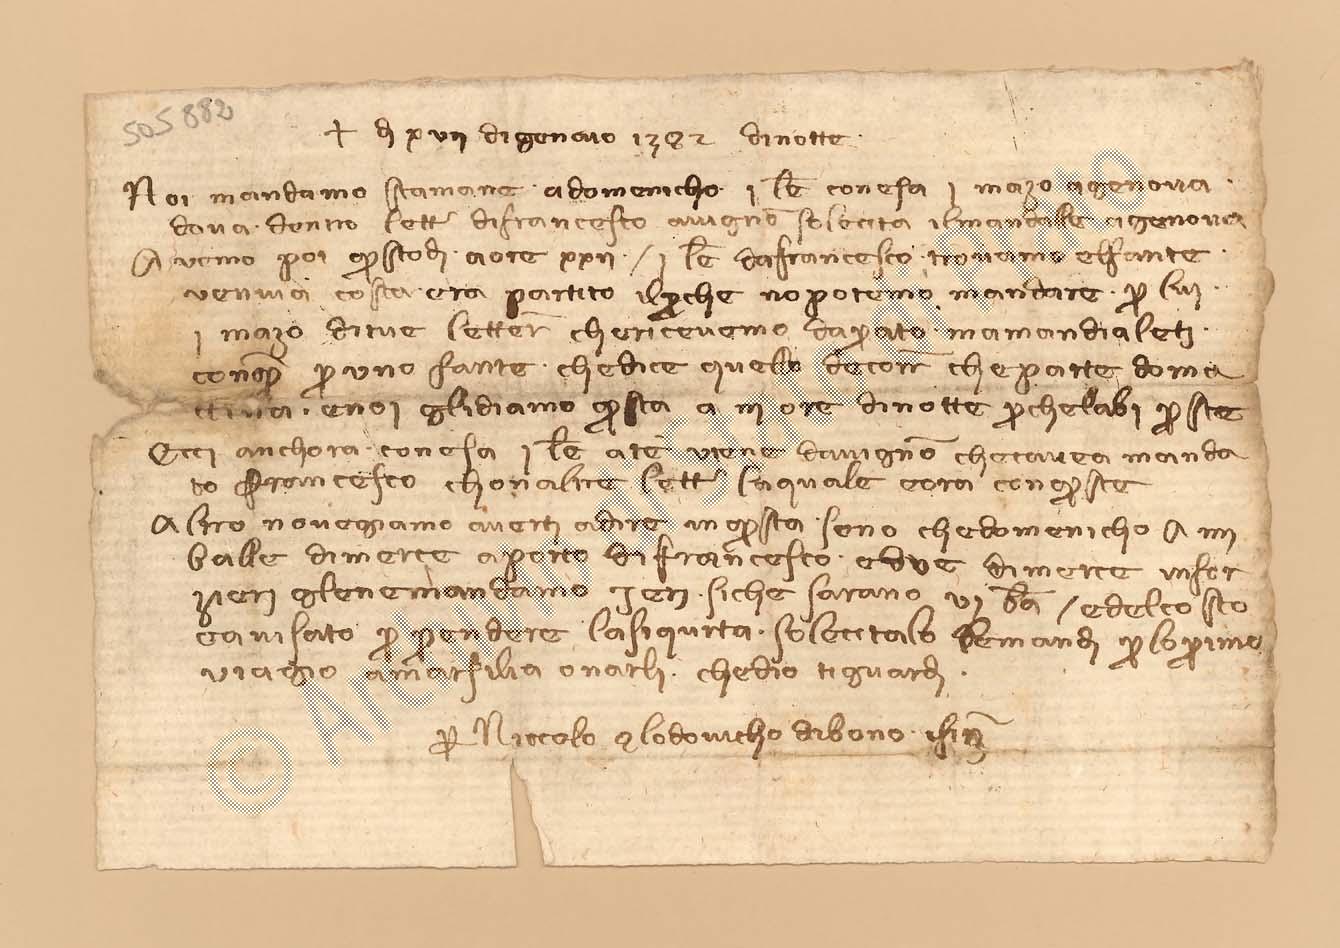 505882
+ dì xvii di genaio 1382 di notte
Noi mandamo stamane a domenicho i le con esa i mazo a genova
dova dentro lett di francesco avignō solecita il mandalle a genova
Avemo poi qsto dì a ore xxii / i le da francesco trovamo el fante
venuia costa era partito il pche no potemo mandare p lui
i mazo di tue letter che ricevemo da pato ma mandialeti
conq p uno fante che dice quello de corr che parte doma
ttina e noi gli diamo qsta a iii ore di notte pche l abi p ste
Ecci anchora con esa i le a te viene davignō che tavea manda
to francesco chon altre lett la quale eora con qste
Altro no vegiamo averti a dire in qsta sono che domenicho a iiii
balle di merce a porto di francesco e due di merce in for
nieri gle ne mandamo ieri siche sarano vi ba / e del costo
e avisato p pendere la siqurta solecitalo le mandi p lo pimo
viagio a marsilia o narli che dio ti guardi
p Niccolo e lodovicho di bono
© Archivio di Stato di Prato